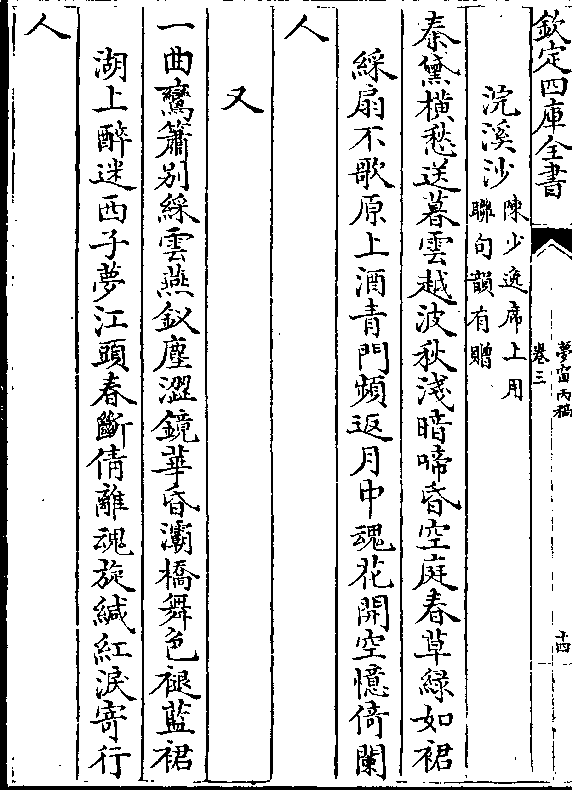 欽定四庫全書
夢窗丙稿
卷三
十四
浣溪沙
陳少逸席上用
聯句韻有贈
秦黛橫愁送暮雲越波秋淺暗啼昏空庭春草綠如裙
綵扇不歌原上酒青門頻返月中魂花開空憶倚闌
人
又
一曲鸞簫別綵雲燕釵塵澀鏡華昏灞橋舞色褪藍裙
湖上醉迷西子夢江頭春斷倩離魂旋緘紅淚寄行
人